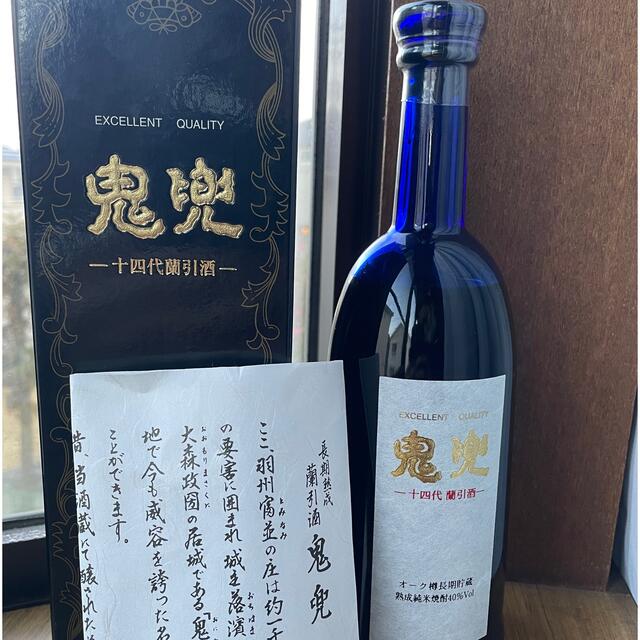 EXCELLENT QUALITY
鬼兜
十四代蘭引酒
EXCELLENT QUALITY
鬼兜
十四代 蘭引酒
オーク樽長期貯蔵
熟成純米焼酎40%Vol
長期熟成
蘭引酒 鬼兜
ここ、羽州富並の庄は約一千
とみなみ
の要害に囲まれ城を落濱
おちはま
大森政国の居城である「鬼
おおもりまさくに
地で今も威容を誇った名
ことができます。
昔、当酒蔵にて醸された